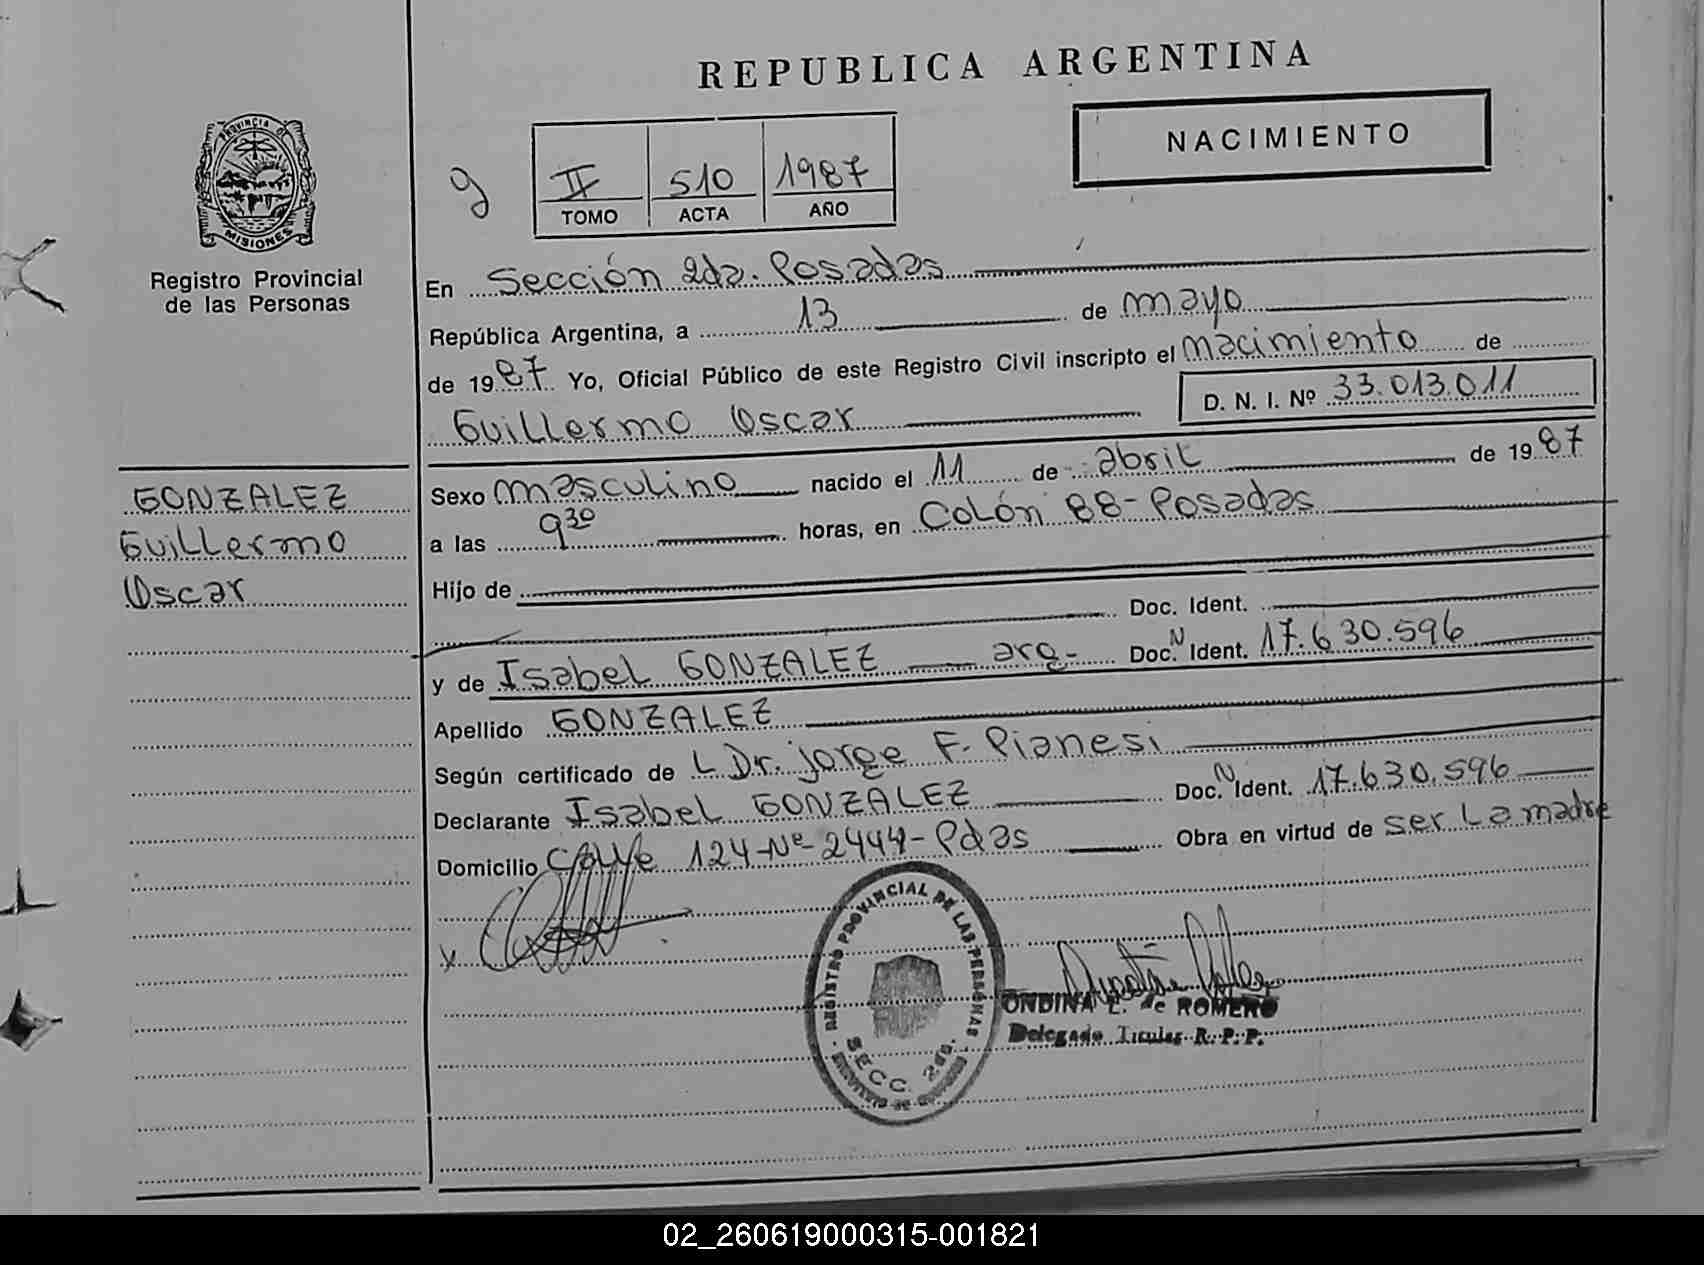 REPUBLICA ARGENTINA
NACIMIENTO
PROVINCIA DE
MISIONES
Registro Provincial
de las Personas
g
II 510 1987
TOMO ACTA AÑO
En Sección 2da. Posadas
República Argentina, a 13 de mayo
de 1987 Yo, Oficial Público de este Registro Civil inscripto el nacimiento de
Guillermo Oscar D. N. I. Nº 33.013.011
GONZALEZ
Guillermo
Oscar
Sexo masculino nacido el 11 de abril de 1987
a las 9 30 horas, en Colón 88-Posadas
Hijo de
Doc. Ident.
y de Isabel GONZALEZ arg- Doc. N Ident. 17.630.596
Apellido GONZALEZ
Según certificado de L Dr. jorge F. Pianesi
Declarante Isabel GONZALEZ Doc. N Ident. 17.630.596
Domicilio calle 124-Nº 2444-Pdas Obra en virtud de ser La madre
x
REGISTRO PROVINCIAL DE LAS PERSONAS
SECC. 2da.
ONDINA L. de ROMERO
Delegado Titular R.P.P.
02_260619000315-001821